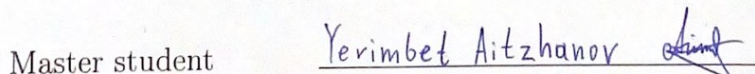 Master student Yerimbet Aitzhanov